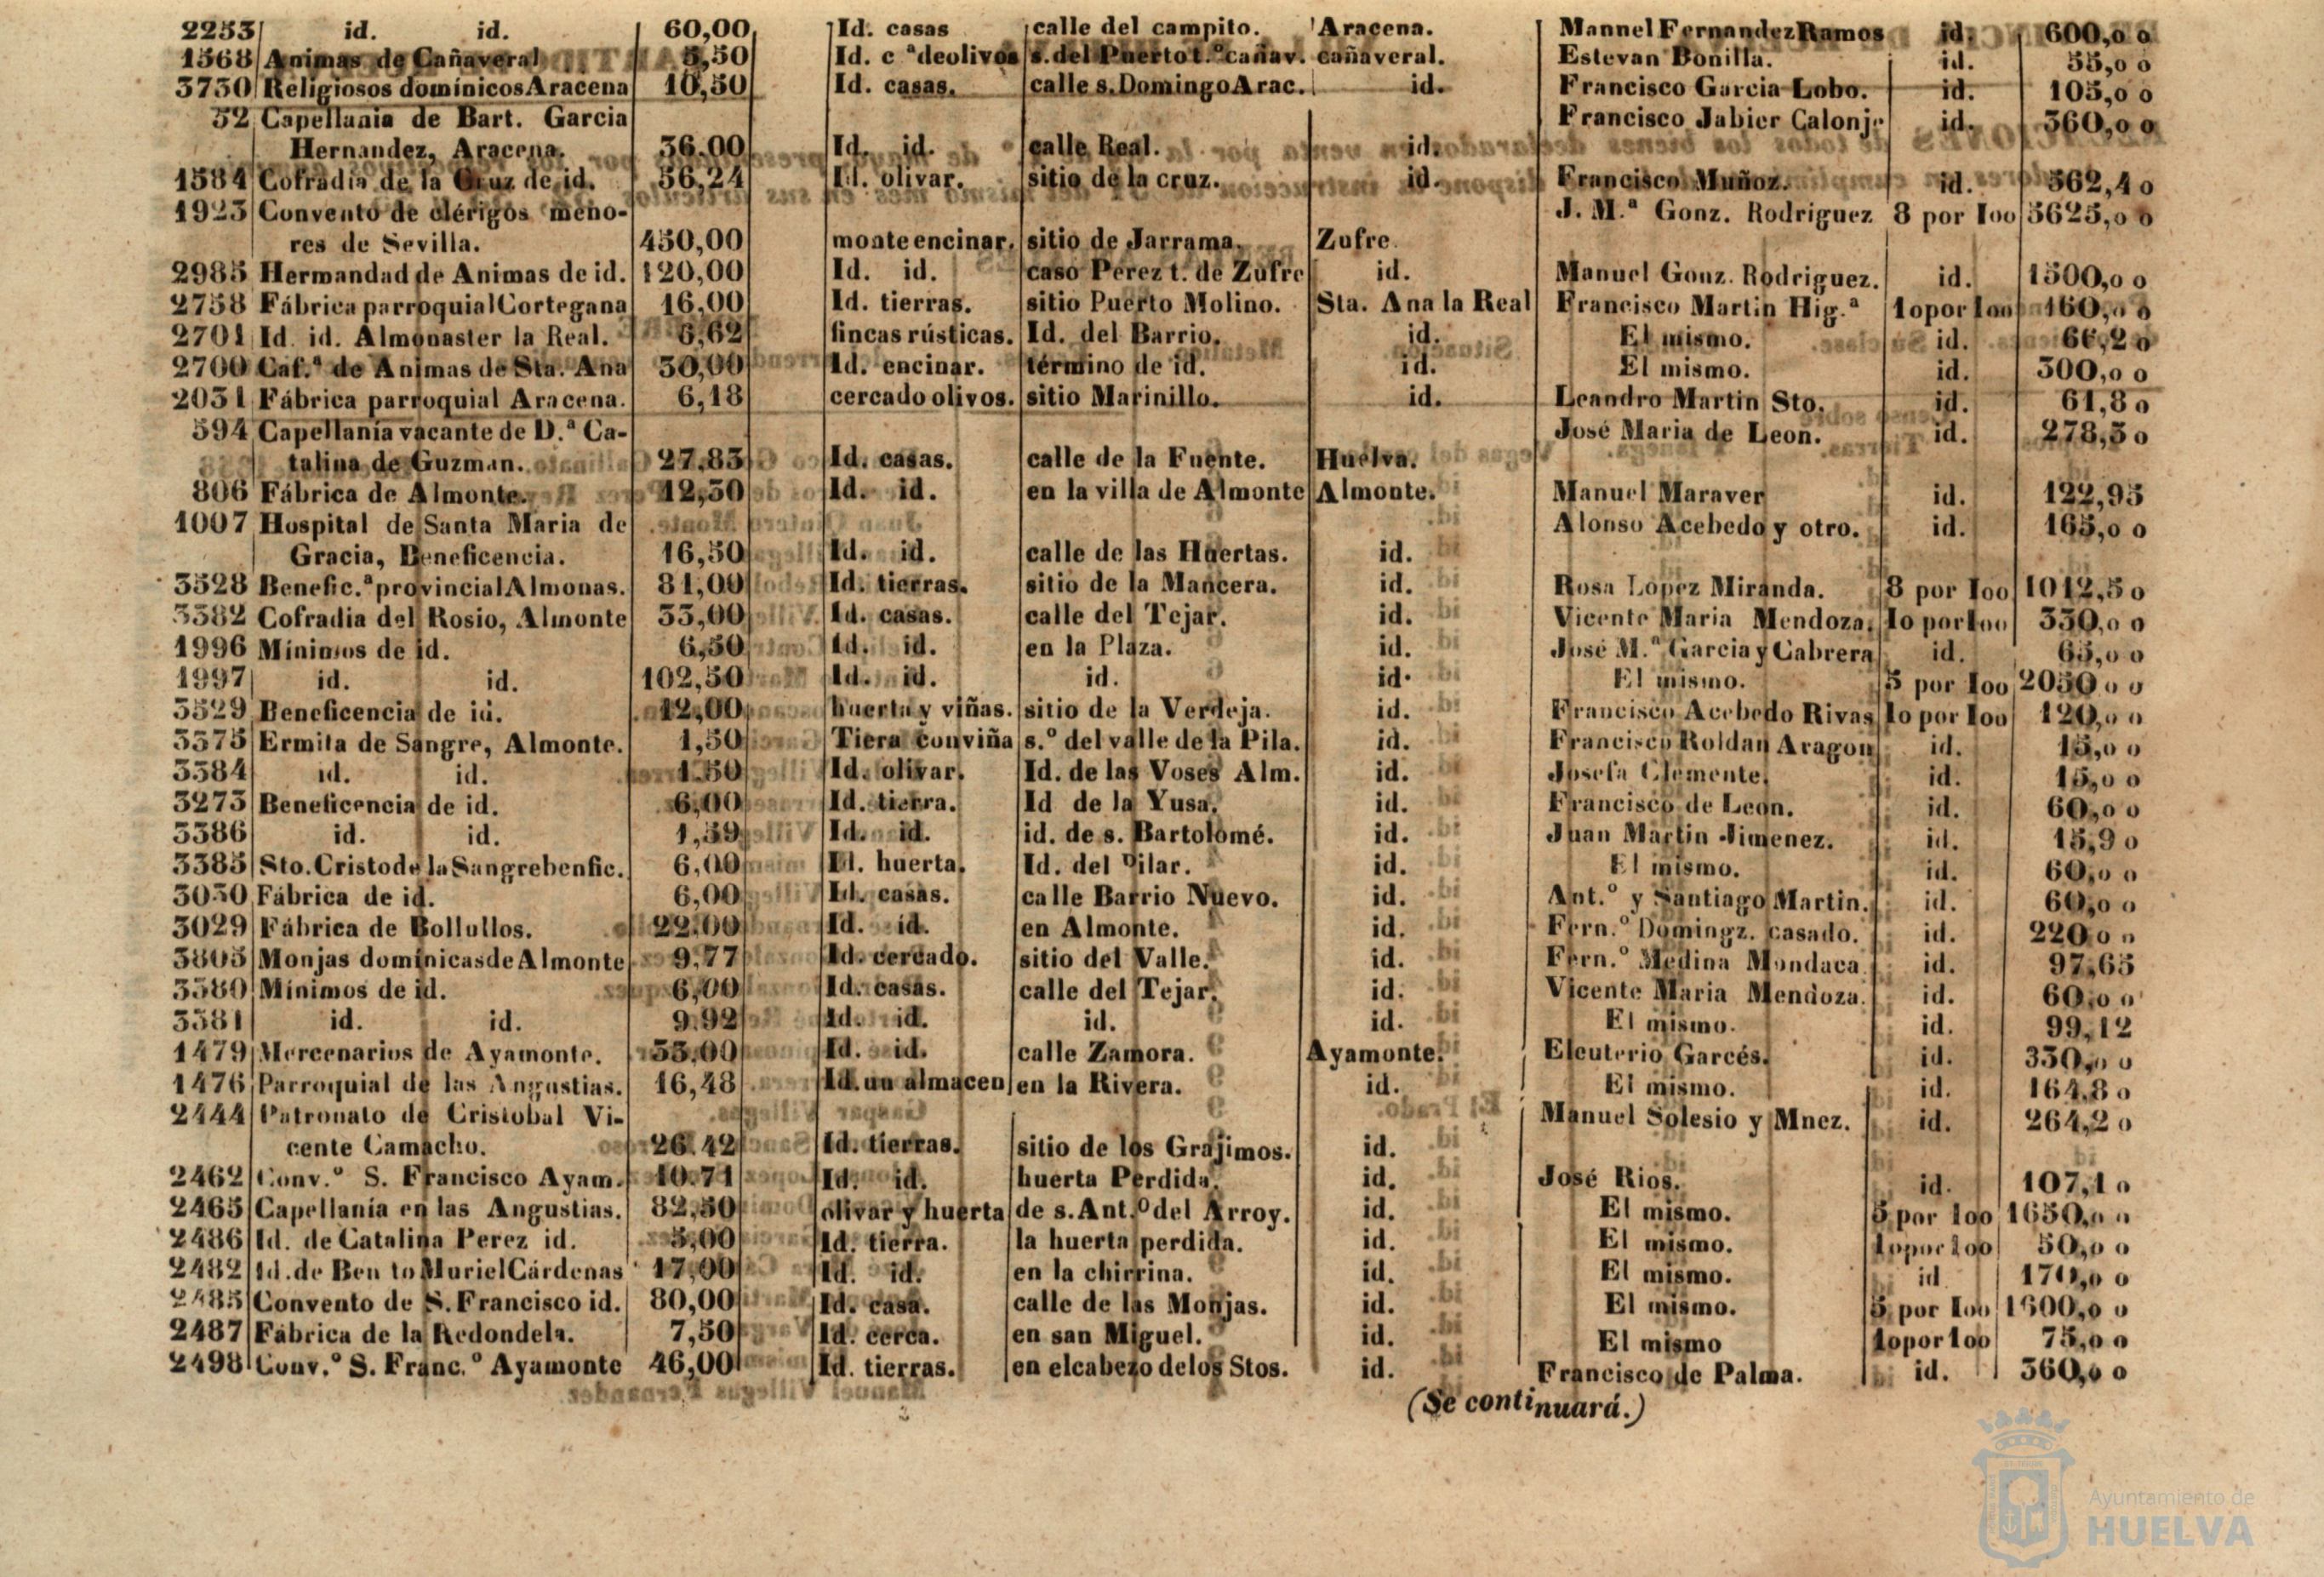 2253 id. id. 60,00 Id. casas calle del campito. Aracena. Mannel Fernandez Ramos id. 600,00
1568 Animas de Cañaveral 5,50 Id. c ª de olivos s. del Puerto t.º cañav. cañaveral. Estevan Bonilla. id. 55,00
3730 Religiosos domínicos Aracena 10,50 Id. casas. calle s. Domingo Arac. id. Francisco Garcia Lobo. id. 105,00
52 Capellania de Bart. Garcia Francisco Jabier Calonje id. 360,00
Hernandez, Aracena. 36.00 Id. id. calle Real. id.
1584 Cofradia de la Cruz de id. 56,24 Id. olivar. sitio de la cruz. id. Francisco Muñoz. id. 562,40
1923 Convento de clérigos meno- J. M.ª Gonz. Rodriguez 8 por 100 5625,00
res de Sevilla. 450,00 monte encinar. sitio de Jarrama. Zufre.
2985 Hermandad de Animas de id. 120,00 Id. id. caso Perez t. de Zufre id. Manuel Gonz. Rodriguez. id. 1500,00
2758 Fábrica parroquial Cortegana 16,00 Id. tierras. sitio Puerto Molino. Sta. Ana la Real Francisco Martin Hig.ª 10 por 100 160,00
2701 Id. id. Almonaster la Real. 6,62 fincas rústicas. Id. del Barrio. id. El mismo. id. 66,20
2700 Caf.ª de Animas de Sta. Ana 30,00 Id. encinar. término de id. id. El mismo. id. 300,00
2031 Fábrica parroquial Aracena. 6,18 cercado olivos. sitio Marinillo. id. Leandro Martin Sto. id. 61,80
594 Capellanía vacante de D.ª Ca- José Maria de Leon. id. 278,30
talina de Guzman. 27.83 Id. casas. calle de la Fuente. Huelva.
806 Fábrica de Almonte. 12,30 Id. id. en la villa de Almonte Almonte. Manuel Maraver id. 122,95
1007 Hospital de Santa Maria de Alonso Acebedo y otro. id. 165,00
Gracia, Beneficencia. 16,50 Id. id. calle de las Huertas. id.
3528 Benefic.ª provincial Almonas. 81,00 Id. tierras. sitio de la Mancera. id. Rosa Lopez Miranda. 8 por 100 1012,50
3382 Cofradia del Rosio, Almonte 33,00 Id. casas. calle del Tejar. id. Vicente Maria Mendoza. 10 por 100 330,00
1996 Mínimos de id. 6,50 Id. id. en la Plaza. id. José M.ª Garcia y Cabrera id. 65,00
1997 id. id. 102,50 Id. id. id. id. El mismo. 5 por 100 2050,00
3529 Beneficencia de id. 12,00 huerta y viñas. sitio de la Verdeja. id. Francisco Acebedo Rivas 10 por 100 120,00
3375 Ermita de Sangre, Almonte. 1,50 Tiera con viña s.º del valle de la Pila. id. Francisco Roldan Aragon id. 15,00
3384 id. id. 1.50 Id. olivar. Id. de las Voses Alm. id. Josefa Clemente. id. 15,00
3273 Beneficencia de id. 6,00 Id. tierra. Id de la Yusa. id. Francisco de Leon. id. 60,00
3386 id. id. 1,59 Id. id. id. de s. Bartolomé. id. Juan Martin Jimenez. id. 15,90
3385 Sto. Cristo de la Sangre benfic. 6,00 Id. huerta. Id. del Pilar. id. El mismo. id. 60,00
3030 Fábrica de id. 6,00 Id. casas. calle Barrio Nuevo. id. Ant.º y Santiago Martin. id. 60,00
3029 Fábrica de Bollullos. 22.00 Id. id. en Almonte. id. Fern.º Domingz. casado. id. 220,00
3803 Monjas domínicas de Almonte 9.77 Id. cercado. sitio del Valle. id. Fern.º Medina Mondaca id. 97,65
3380 Mínimos de id. 6,00 Id. casas. calle del Tejar. id. Vicente Maria Mendoza. id. 60,00
3381 id. id. 9.92 Id. id. id. id. El mismo. id. 99,12
1479 Mercenarios de Ayamonte. 33,00 Id. id. calle Zamora. Ayamonte. Eleuterio Garcés. id. 330,00
1476 Parroquial de las Angustias. 16,48 Id. un almacen en la Rivera. id. El mismo. id. 164,80
2444 Patronato de Cristobal Vi- Manuel Solesio y Mnez. id. 264,20
cente Camacho. 26.42 Id. tierras. sitio de los Grajimos. id.
2462 Conv.º S. Francisco Ayam. 10.71 Id. id. huerta Perdida. id. José Rios. id. 107,10
2465 Capellanía en las Angustias. 82,50 olivar y huerta de s. Ant.º del Arroy. id. El mismo. 5 por 100 1650,00
2486 Id. de Catalina Perez id. 5,00 Id. tierra. la huerta perdida. id. El mismo. 10 por 100 50,00
2482 Id. de Ben to Muriel Cárdenas 17,00 Id. id. en la chirrina. id. El mismo. id 170,00
2485 Convento de S. Francisco id. 80,00 Id. casa. calle de las Monjas. id. El mismo. 5 por 100 1600,00
2487 Fábrica de la Redondela. 7,50 Id. cerca. en san Miguel. id. El mismo 10 por 100 75,00
2498 Conv.º S. Franc.º Ayamonte 46,00 Id. tierras. en el cabezo de los Stos. id. Francisco de Palma. id. 360,00
(Se continuará.)
Ayuntamiento de
HUELVA